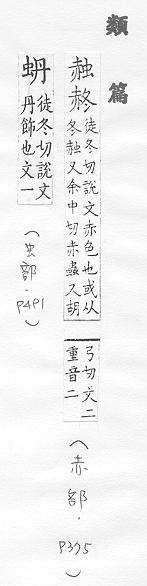 類篇
赨
徒冬切說文赤色也或从
冬赨又余中切赤蟲又胡
弓切文二
重音二
(赤部.P375)
蚒
徒冬切說文
丹飾也文一
(虫部.P491)